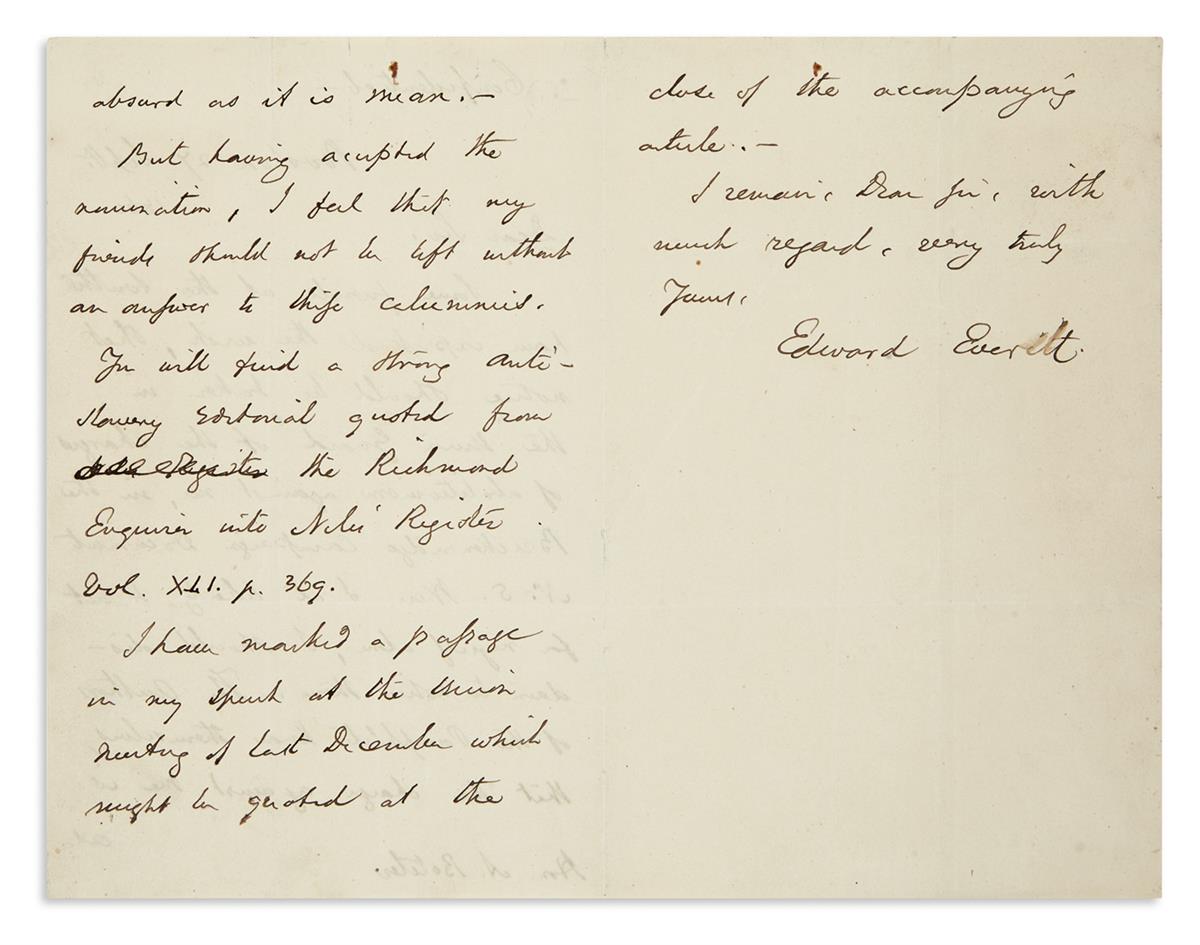 absurd as it is mean. —
But having accepted the
nomination, I feel that my
friends should not be left without
an answer to these calumnies.
You will find a strong anti-
slavery editorial quoted from
Register the Richmond
Enquirer into Niles' Register
Vol. XLI. p. 369.
I have marked a passage
in my speech at the Union
meeting of last December which
might be quoted at the
Hon. A. Boteler.
close of the accompanying
article. —
I remain, Dear Sir, with
much regard, very truly
Yours,
Edward Everett.